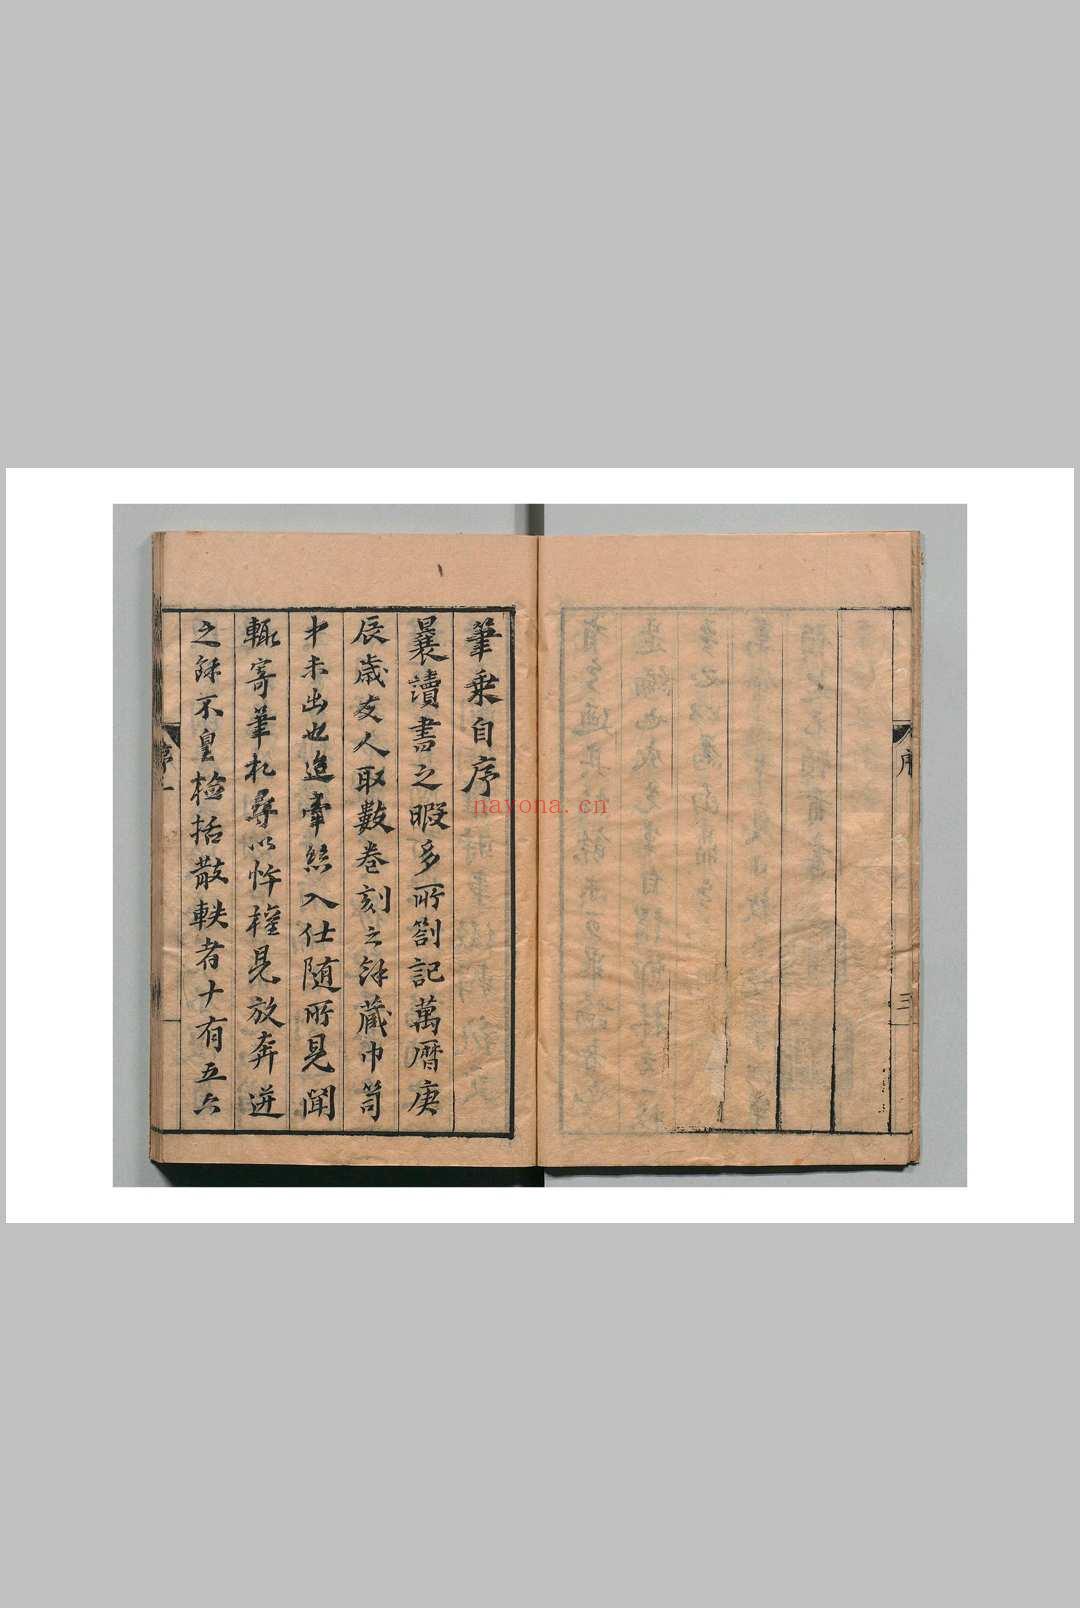 筆乗自序
曩讀書之暇多所劄記萬曆庚
辰歲友人取數卷刻之餘藏巾笥
中未出也迨牽絲入仕随所見聞
輒寄筆札尋以忤權見放奔迸
之餘不皇檢括散軼者十有五六
序
一
序
三
nayona.cn